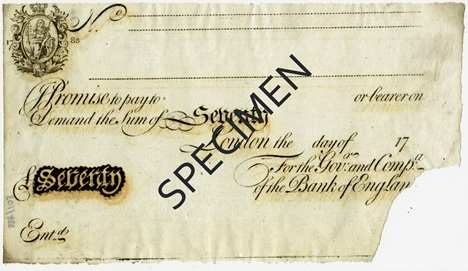 No
I Promise to pay to or bearer on
Demand the Sum of Seventy
London the day of 17
For the Gov.r and Comp.a
of the Bank of Englan
£ Seventy
Ent.d
SPECIMEN